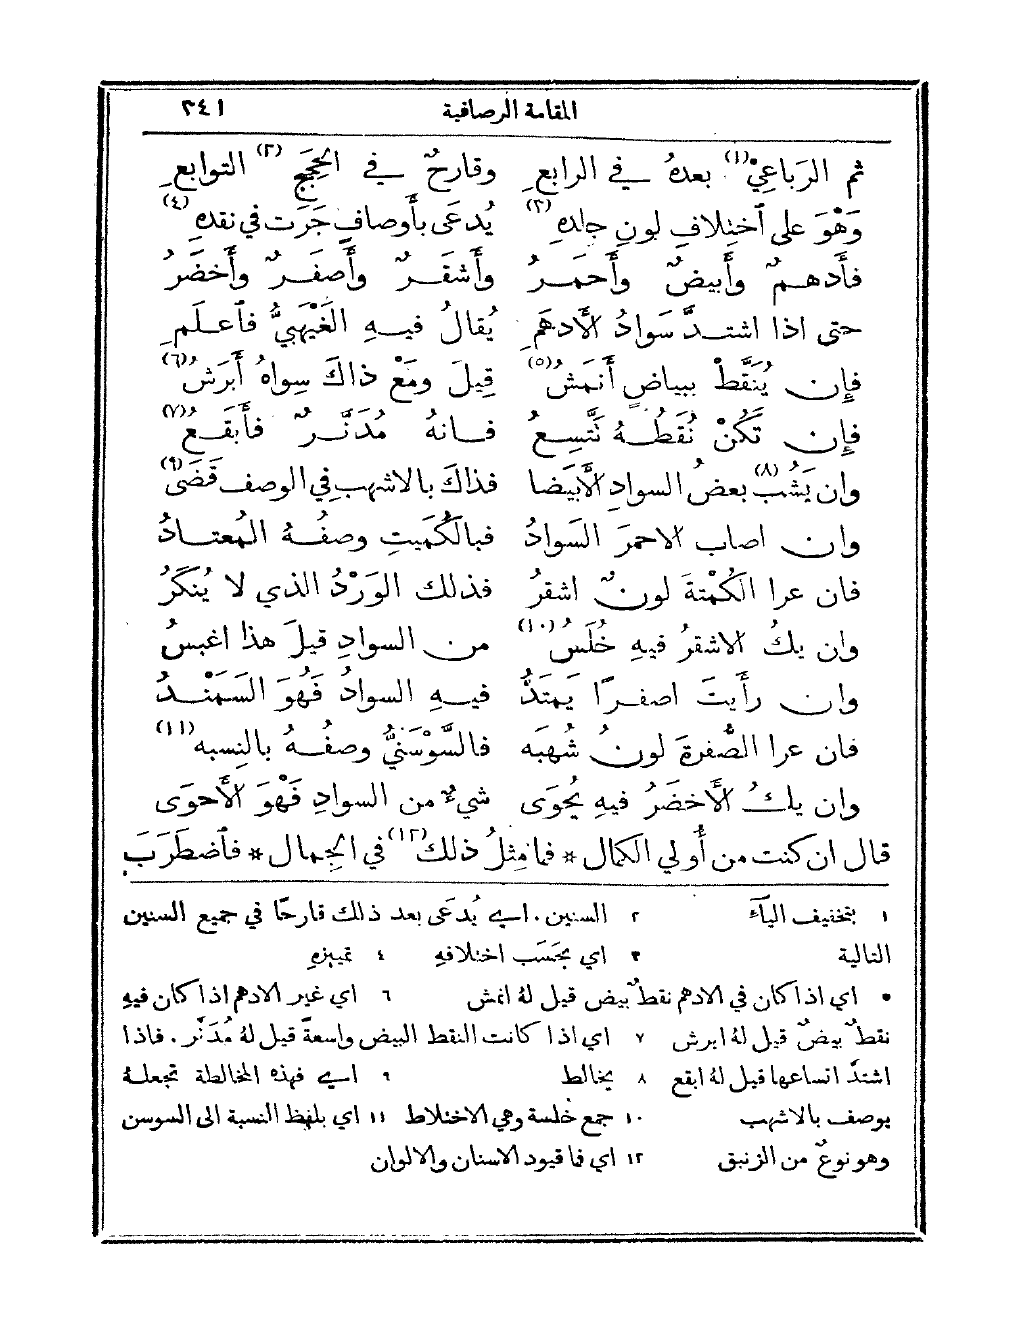 المقامة الرصافية ٢٤١
ثم الرَبَاعِيْ(١) بعدهُ في الرابعِ وقارحٌ في الحِجَجِ(٢) التوابعِ
وَهْوَ على ٱختِلافِ لونِ جلدهِ(٣) يُدعَى بأَوصافٍ جَرَت في نقدهِ(٤)
فأَدهمٌ وأَبيضٌ وأَحمَرُ وأَشقَرٌ وأَصفَرٌ وأَخضَرُ
حتى اذا اشتدَّ سَوادُ الأَدهَمِ يُقالُ فيهِ الغَيْهَبيُّ فٱعلَمِ
فإِن يُنَقَّطْ ببياضٍ أَنمَشُ(٥) قِيلَ ومَعْ ذاكَ سِواهُ أَبرَشُ(٦)
فإِن تَكُنْ نُقَطُهُ تَتَّسِعُ فانهُ مُدَنَّرٌ فأَبقَعُ(٧)
وان يَشُب(٨) بعضُ السوادِ الأَبيَضا فذاكَ بالاشهبِ في الوصف قَضَى(٩)
وان اصاب الاحمرَ السَوادُ فبالكُمَيتِ وصفُهُ المُعتادُ
فان عرا الكُمْتةَ لونٌ اشقرُ فذلك الوَرْدُ الذي لا يُنكَرُ
وان يكُ الاشقرُ فيهِ خُلَسُ(١٠) من السوادِ قيلَ هذا اغبسُ
وان رأَيتَ اصفرًا يَمتَدُّ فيهِ السوادُ فَهُوَ السَمَنْدُ
فان عرا الصُّفرةَ لونُ شُهبَه فالسَّوْسَنيُّ وصفُهُ بالنِسبه(١١)
وان يكُ الأَخضَرُ فيهِ يُحوَى شيءٌ من السوادِ فَهْوَ الأَحوَى
قال ان كنت من أُولي الكمال * فما مِثلُ ذلك(١٢) في الجِمال * فٱضطَرَبَ
١ بتخفيف اليآء ٢ السنين. اي يُدعَى بعد ذلك قارحًا في جميع السنين
التالية ٣ اي بحَسَب اختلافهِ ٤ تمييزهِ
٥ اي اذا كان في الادهم نقطٌ بيض قيل لهُ انمش ٦ اي غير الادهم اذا كان فيهِ
نقطٌ بيضٌ قيل لهُ ابرش ٧ اي اذا كانت النقط البيض واسعةً قيل لهُ مُدَنَّر. فاذا
اشتدَّ اتساعها قيل لهُ ابقع ٨ يخالط ٩ اي فهذه المخالطة تجعلهُ
يوصف بالاشهب ١٠ جمع خُلسة وهي الاختلاط ١١ اي بلفظ النسبة الى السوسن
وهو نوعٌ من الزنبق ١٢ اي فما قيود الاسنان والالوان